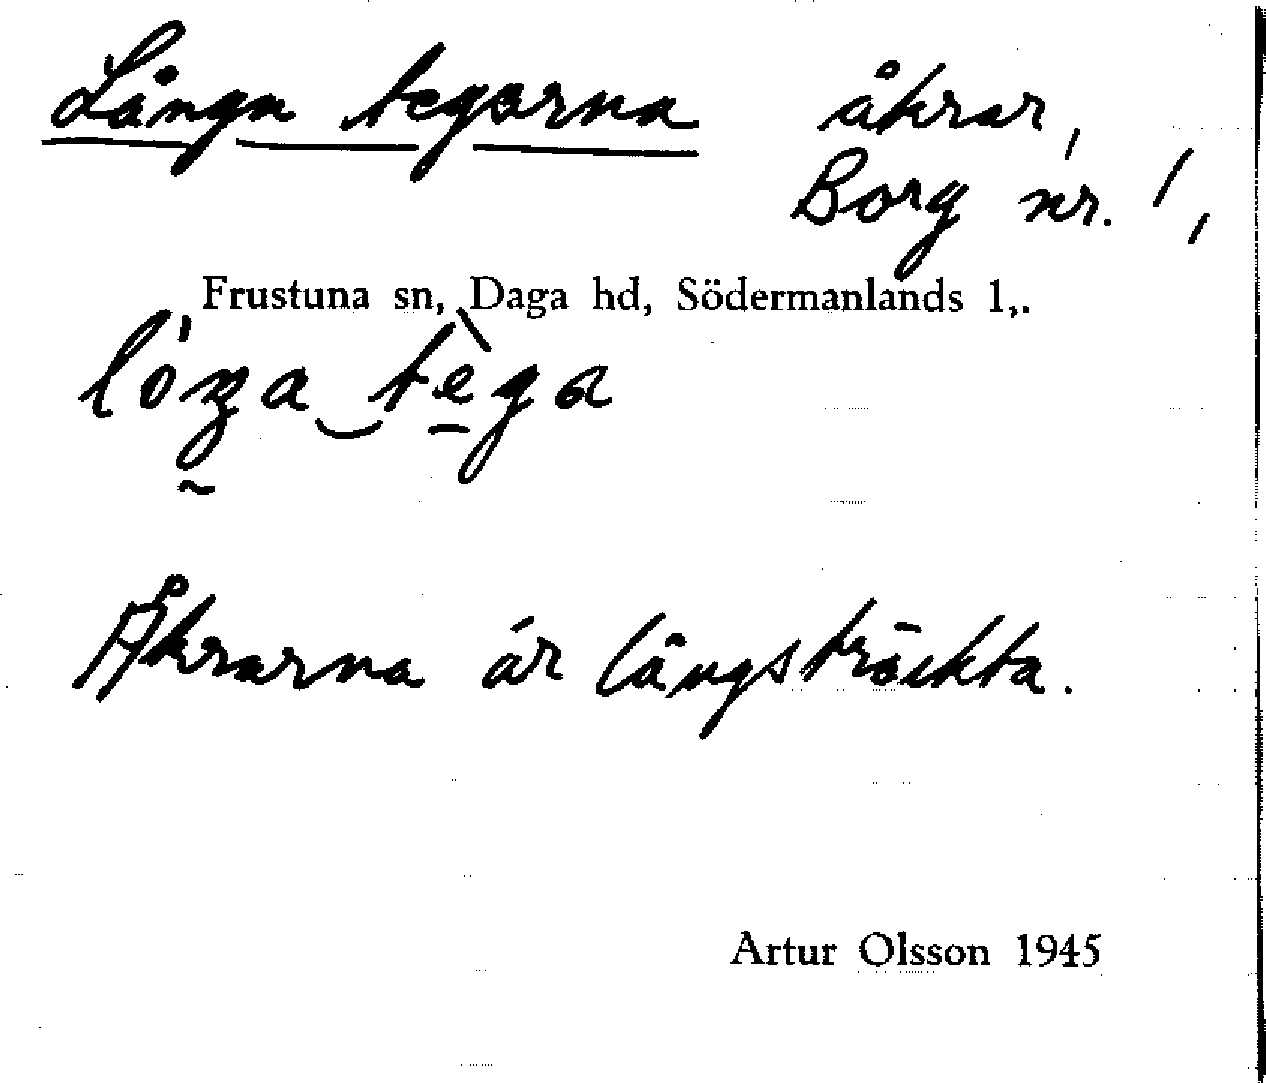 Långa tegarna åkrar,
Borg nr. 1,
Frustuna sn, Daga hd, Södermanlands l,.
Åkrarna är långsträckta.
Artur Olsson 1945